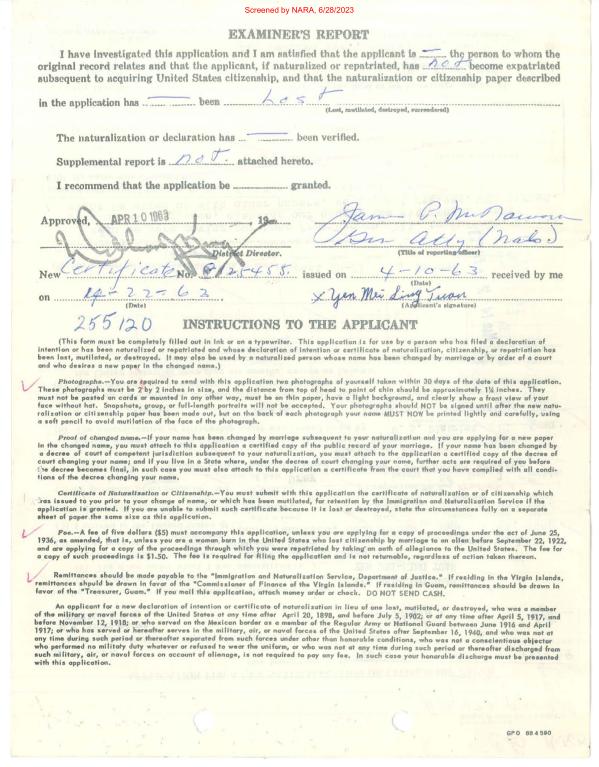 Screened by NARA, 6/28/2023
EXAMINER'S REPORT
I have investigated this application and I am satisfied that the applicant is — the person to whom the
original record relates and that the applicant, if naturalized or repatriated, has not become expatriated
subsequent to acquiring United States citizenship, and that the naturalization or citizenship paper described
in the application has — been Lost
(Lost, mutilated, destroyed, surrendered)
The naturalization or declaration has — been verified.
Supplemental report is not attached hereto.
I recommend that the application be granted.
Approved, APR 10 1963, 19 James P.
District Director. Gen Atty (Natz)
(Title of reporting officer)
New Certificate No. issued on 4-10-63 received by me
(Date)
on 4-22-63 x Yen Mei Ling Tuan
(Date) (Applicant's signature)
255120
INSTRUCTIONS TO THE APPLICANT
(This form must be completely filled out in ink or on a typewriter. This application is for use by a person who has filed a declaration of
intention or has been naturalized or repatriated and whose declaration of intention or certificate of naturalization, citizenship, or repatriation has
been lost, mutilated, or destroyed. It may also be used by a naturalized person whose name has been changed by marriage or by order of a court
and who desires a new paper in the changed name.)
Photographs.—You are required to send with this application two photographs of yourself taken within 30 days of the date of this application.
These photographs must be 2 by 2 inches in size, and the distance from top of head to point of chin should be approximately 1¼ inches. They
must not be pasted on cards or mounted in any other way, must be on thin paper, have a light background, and clearly show a front view of your
face without hat. Snapshots, group, or full-length portraits will not be accepted. Your photographs should NOT be signed until after the new natu-
ralization or citizenship paper has been made out, but on the back of each photograph your name MUST NOW be printed lightly and carefully, using
a soft pencil to avoid mutilation of the face of the photograph.
Proof of changed name.—If your name has been changed by marriage subsequent to your naturalization and you are applying for a new paper
in the changed name, you must attach to this application a certified copy of the public record of your marriage. If your name has been changed by
a decree of court of competent jurisdiction subsequent to your naturalization, you must attach to the application a certified copy of the decree of
court changing your name; and if you live in a State where, under the decree of court changing your name, further acts are required of you before
the decree becomes final, in such case you must also attach to this application a certificate from the court that you have complied with all condi-
tions of the decree changing your name.
Certificate of Naturalization or Citizenship.—You must submit with this application the certificate of naturalization or of citizenship which
was issued to you prior to your change of name, or which has been mutilated, for retention by the Immigration and Naturalization Service if the
application is granted. If you are unable to submit such certificate because it is lost or destroyed, state the circumstances fully on a separate
sheet of paper the same size as this application.
Fee.—A fee of five dollars ($5) must accompany this application, unless you are applying for a copy of proceedings under the act of June 25,
1936, as amended, that is, unless you are a woman born in the United States who lost citizenship by marriage to an alien before September 22, 1922,
and are applying for a copy of the proceedings through which you were repatriated by taking an oath of allegiance to the United States. The fee for
a copy of such proceedings is $1.50. The fee is required for filing the application and is not returnable, regardless of action taken thereon.
Remittances should be made payable to the "Immigration and Naturalization Service, Department of Justice." If residing in the Virgin Islands,
remittances should be drawn in favor of the "Commissioner of Finance of the Virgin Islands." If residing in Guam, remittances should be drawn in
favor of the "Treasurer, Guam." If you mail this application, attach money order or check. DO NOT SEND CASH.
An applicant for a new declaration of intention or certificate of naturalization in lieu of one lost, mutilated, or destroyed, who was a member
of the military or naval forces of the United States at any time after April 20, 1898, and before July 5, 1902; or at any time after April 5, 1917, and
before November 12, 1918; or who served on the Mexican border as a member of the Regular Army or National Guard between June 1916 and April
1917; or who has served or hereafter serves in the military, air, or naval forces of the United States after September 16, 1940, and who was not at
any time during such period or thereafter separated from such forces under other than honorable conditions, who was not a conscientious objector
who performed no military duty whatever or refused to wear the uniform, or who was not at any time during such period or thereafter discharged from
such military, air, or naval forces on account of alienage, is not required to pay any fee. In such case your honorable discharge must be presented
with this application.
GPO 884590